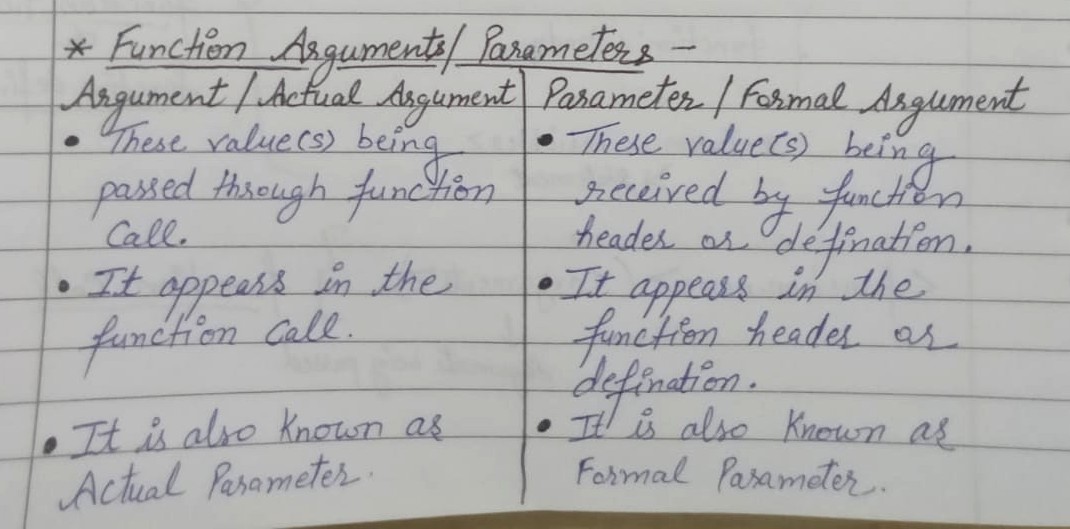 * Function Arguments/Parameters -
Argument / Actual Argument
• These value(s) being
passed through function
Call.
• It appears in the
function Call.
• It is also Known as
Actual Parameter.
Parameter / Formal Argument
• These value(s) being
received by function
header or defination.
• It appears in the
function header or
defination.
• It is also Known as
Formal Parameter.